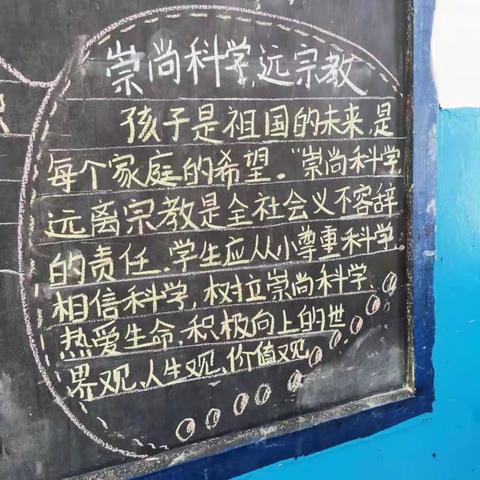 崇尚科学,远宗教
孩子是祖国的未来,是
每个家庭的希望。"崇尚科学
远离宗教是全社会义不容辞
的责任.学生应从小尊重科学.
相信科学,树立崇尚科学、
热爱生命,积极向上的世
界观、人生观、价值观